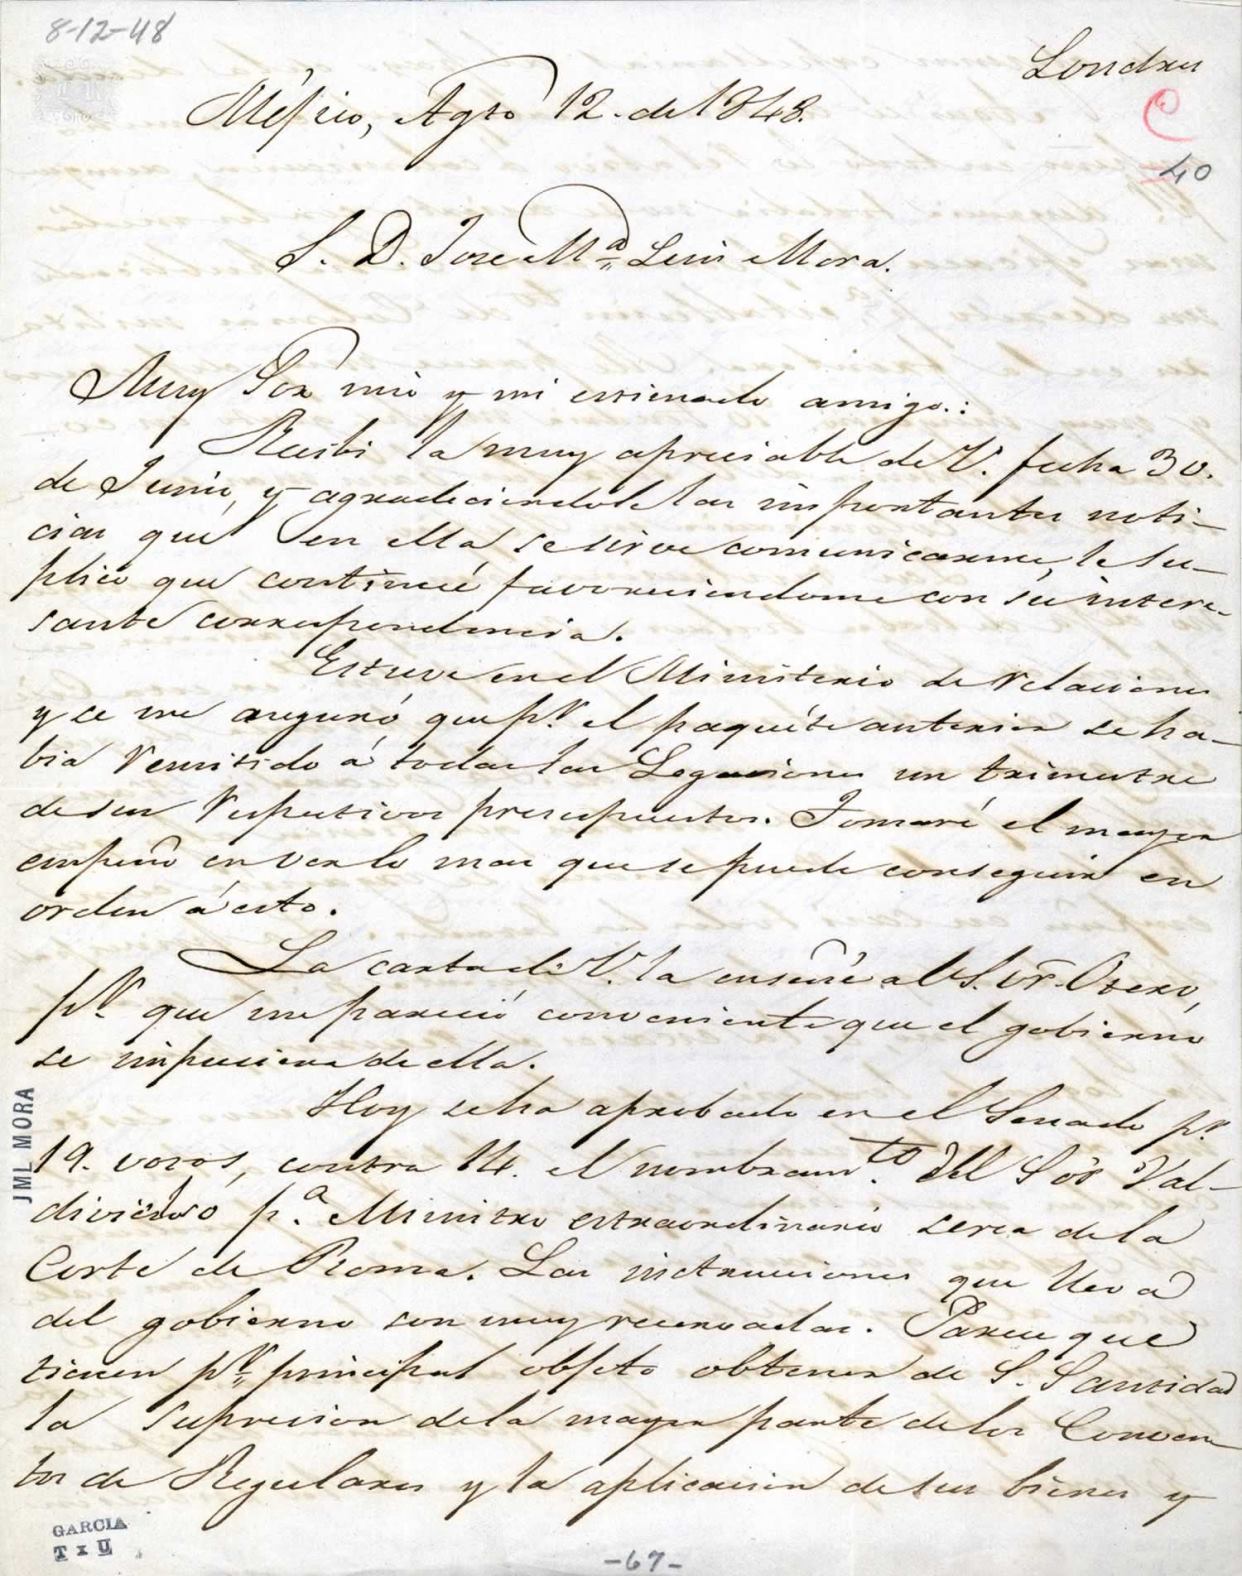 8-12-48
Londres
Méjico, Agto 12. de 1848.
40
S. D. Jose Ma Luis Mora.
Muy Sor mio y mi estimado amigo.:
Recibi la muy apreciable de V. fecha 30.
de Junio, y agradeciendole las importantes noti-
cias que en ella se sirve comunicarme, le su-
plico que continué favoreciendome con su intere-
sante correspondencia.
Estuve en el Ministerio de relaciones
y se me aseguró, que pr. el paquete anterior se ha-
bia remitido á todas las Legaciones un trimestre
de sus respectivos presupuestos. Tomaré el mayor
empeño en ver lo mas que se puede conseguir en
orden á esto.
La carta de V. la enseñé al S. Or. Otero,
pr. que me pareció conveniente que el gobierno
se impusiera de ella.
Hoy se ha aprobado en el Senado pr.
19. votos, contra 14. el nombramto. del Sór Val-
divielso pa. Ministro extraordinario cerca de la
Corte de Roma. Las instrucciones que lleva
del gobierno son muy reservadas. Parece que
tienen pr. principal objeto obtener de S. Santidad
la supresion de la mayor parte de los Conven-
tos de Regulares y la aplicacion de sus bienes y
JML MORA
GARCIA
T x U
-67-